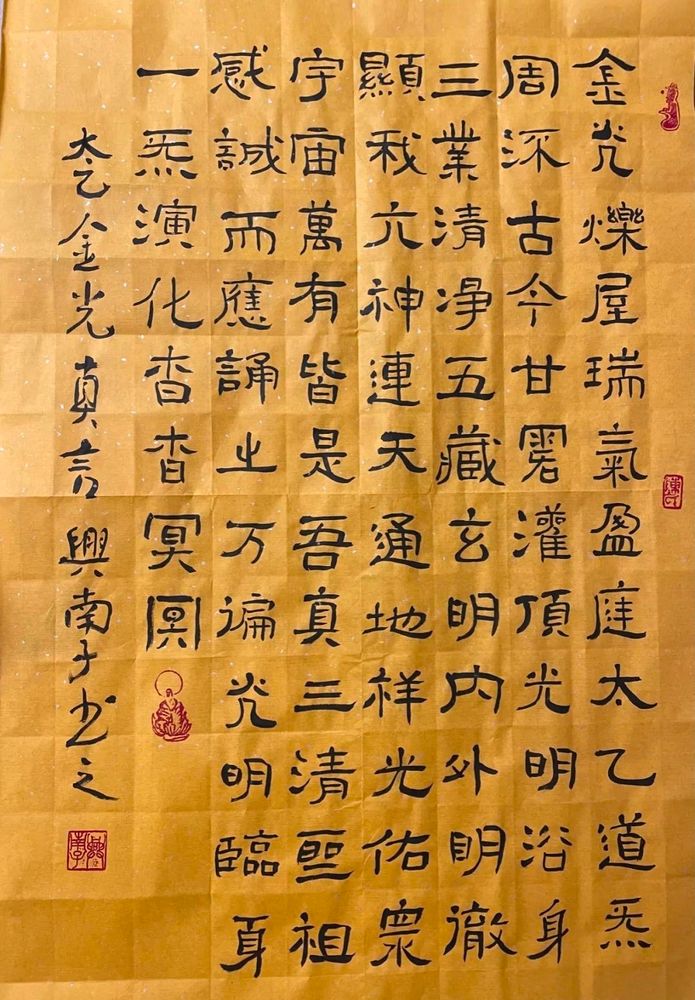 金光爍屋瑞氣盈庭太乙道炁
周流古今甘露灌頂光明浴身
三業清淨五藏玄明內外明徹
顯我六神連天通地祥光佑眾
宇宙萬有皆是吾真三清聖祖
感誠而應誦之万遍光明臨身
一炁演化杳杳冥冥
太乙金光真言興南子書之